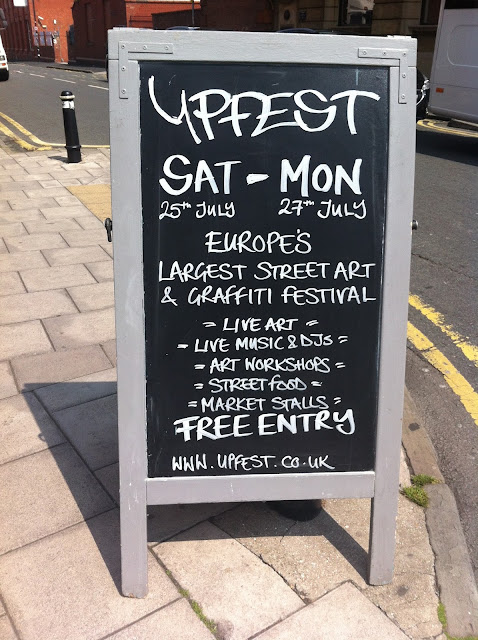 UPFEST
SAT - MON
25TH JULY 27TH JULY
EUROPE'S
LARGEST STREET ART
& GRAFFITI FESTIVAL
= LIVE ART =
- LIVE MUSIC & DJs =
= ART WORKSHOPS =
= STREET FOOD =
= MARKET STALLS =
FREE ENTRY
WWW.UPFEST.CO.UK